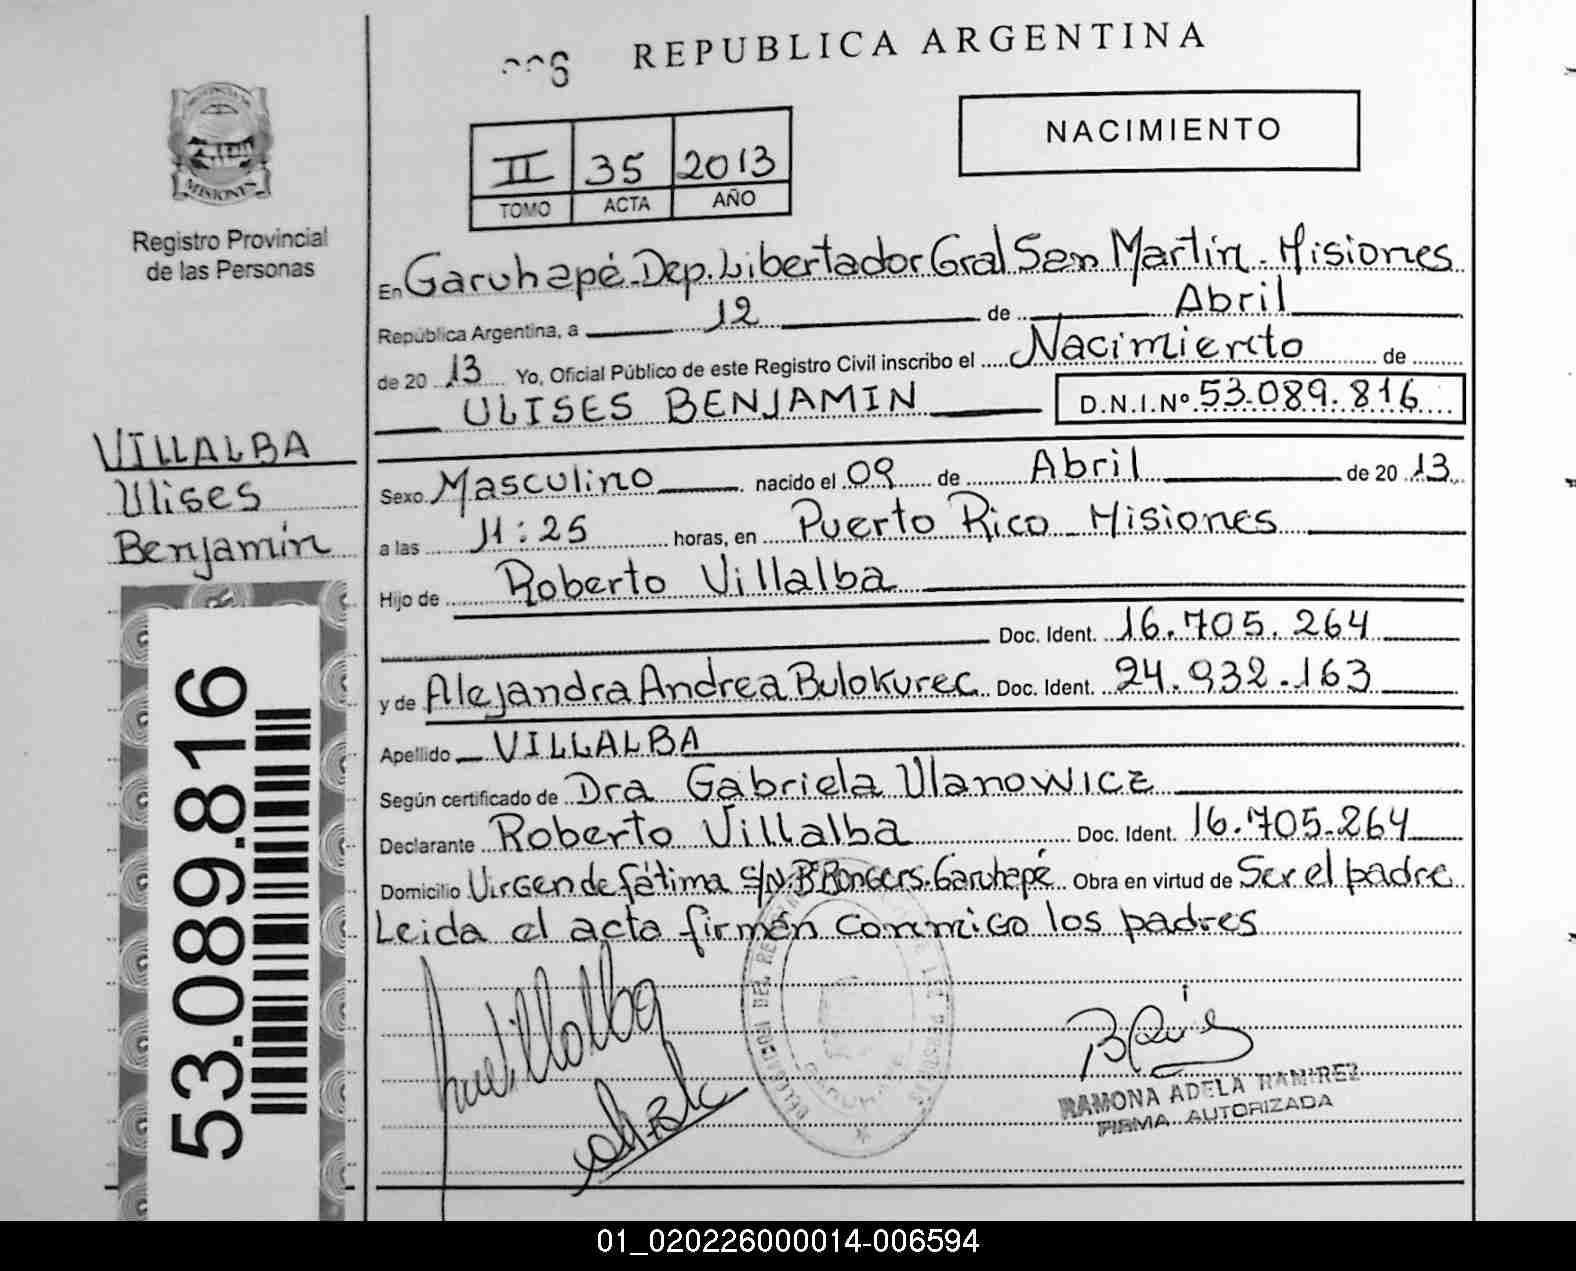 REPUBLICA ARGENTINA
NACIMIENTO
II 35 2013
TOMO ACTA AÑO
PROVINCIA DE
MISIONES
Registro Provincial
de las Personas
VILLALBA
Ulises
Benjamín
53.089.816
En Garuhapé-Dep. Libertador Gral San Martín - Misiones
República Argentina, a 12 de Abril
de 20 13 Yo, Oficial Público de este Registro Civil inscribo el Nacimiento de
ULISES BENJAMIN D.N.I.Nº 53.089.816
Sexo Masculino nacido el 09 de Abril de 20 13
a las 11:25 horas, en Puerto Rico - Misiones
Hijo de Roberto Villalba
Doc. Ident. 16.705.264
y de Alejandra Andrea Bulokurec Doc. Ident. 24.932.163
Apellido VILLALBA
Según certificado de Dra Gabriela Ulanowicz
Declarante Roberto Villalba Doc. Ident. 16.705.264
Domicilio Virgen de fátima S/N. Bº Bongers. Garuhapé Obra en virtud de Ser el padre
Leida el acta firman conmigo los padres
RAMONA ADELA RAMIREZ
FIRMA AUTORIZADA
01_020226000014-006594